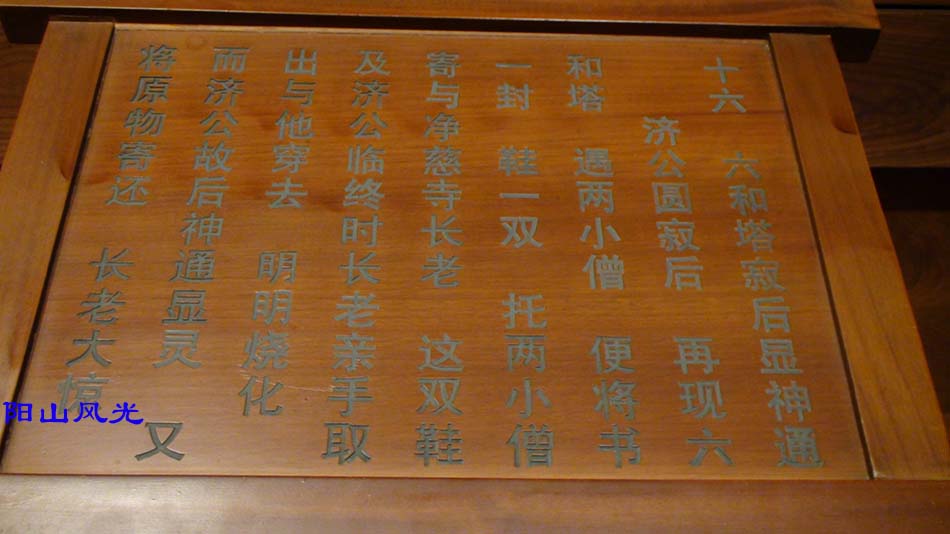 十六 六和塔寂后显神通
济公圆寂后 再现六
和塔 遇两小僧 便将书
一封 鞋一双 托两小僧
寄与净慈寺长老 这双鞋
及济公临终时长老亲手取
出与他穿去 明明烧化
而济公故后神通显灵 又
将原物寄还 长老大惊
阳山风光